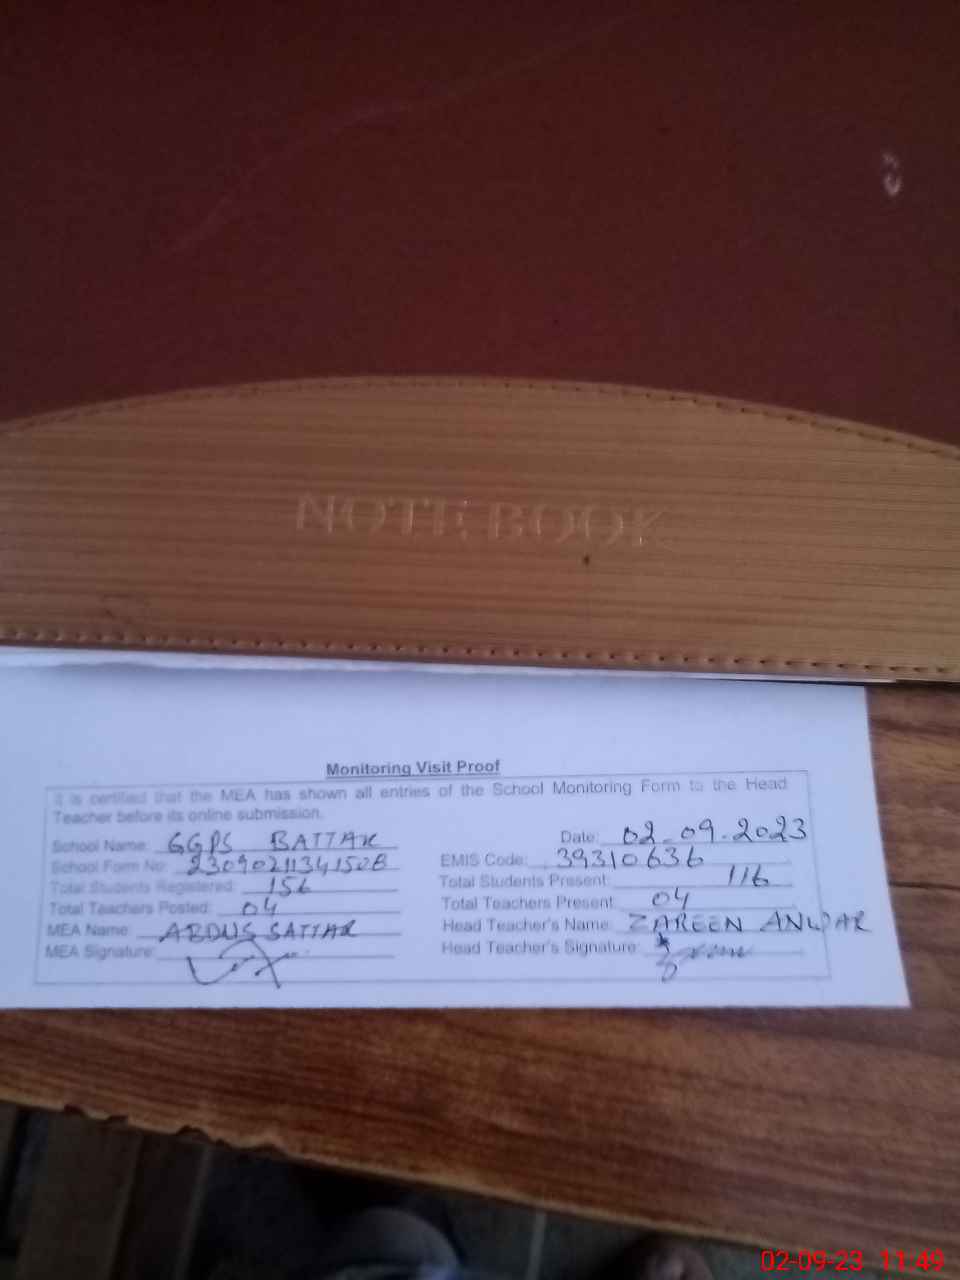 NOTE BOOK
Monitoring Visit Proof
It is certified that the MEA has shown all entries of the School Monitoring Form to the Head
Teacher before its online submission.
School Name: GGPS BATTAK Date: 02-09-2023
School Form No: EMIS Code: 39310636
Total Students Registered: 156 Total Students Present: 116
Total Teachers Posted: 04 Total Teachers Present: 04
MEA Name: ABDUS SATTAR Head Teacher's Name: ZAREEN ANWAR
MEA Signature: Head Teacher's Signature:
02-09-23 11:49